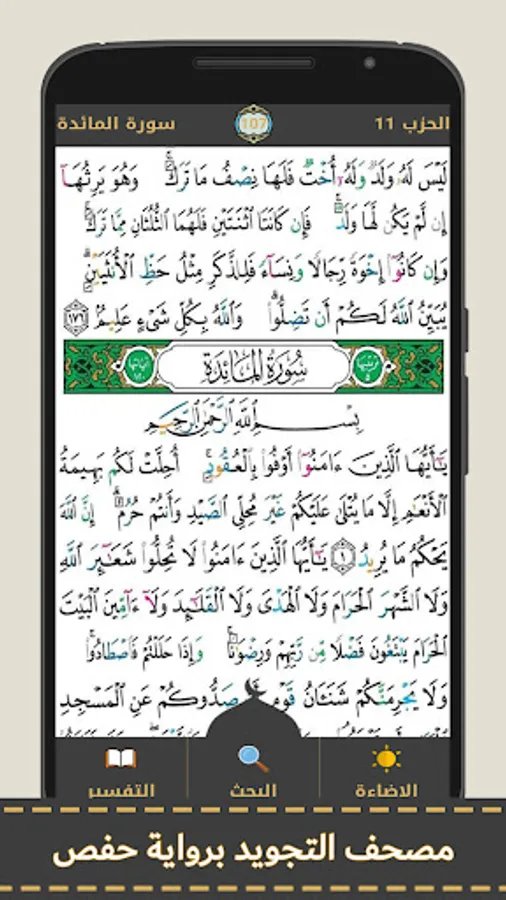 سورة المائدة 107 الحزب 11
لَيْسَ لَهُۥ وَلَدٌ وَلَهُۥٓ أُخْتٌ فَلَهَا نِصْفُ مَا تَرَكَ ۚ وَهُوَ يَرِثُهَآ
إِن لَّمْ يَكُن لَّهَا وَلَدٌ ۚ فَإِن كَانَتَا ٱثْنَتَيْنِ فَلَهُمَا ٱلثُّلُثَانِ مِمَّا تَرَكَ ۚ
وَإِن كَانُوٓا۟ إِخْوَةً رِّجَالًا وَنِسَآءً فَلِلذَّكَرِ مِثْلُ حَظِّ ٱلْأُنثَيَيْنِ ۗ
يُبَيِّنُ ٱللَّهُ لَكُمْ أَن تَضِلُّوا۟ ۗ وَٱللَّهُ بِكُلِّ شَىْءٍ عَلِيمٌۢ ١٧٦
ترتيبها ٥ سُورَةُ المَائِدَةِ آياتها ١٢٠
بِسْمِ ٱللَّهِ ٱلرَّحْمَٰنِ ٱلرَّحِيمِ
يَٰٓأَيُّهَا ٱلَّذِينَ ءَامَنُوٓا۟ أَوْفُوا۟ بِٱلْعُقُودِ ۚ أُحِلَّتْ لَكُم بَهِيمَةُ
ٱلْأَنْعَٰمِ إِلَّا مَا يُتْلَىٰ عَلَيْكُمْ غَيْرَ مُحِلِّى ٱلصَّيْدِ وَأَنتُمْ حُرُمٌ ۗ إِنَّ ٱللَّهَ
يَحْكُمُ مَا يُرِيدُ ١ يَٰٓأَيُّهَا ٱلَّذِينَ ءَامَنُوا۟ لَا تُحِلُّوا۟ شَعَٰٓئِرَ ٱللَّهِ
وَلَا ٱلشَّهْرَ ٱلْحَرَامَ وَلَا ٱلْهَدْىَ وَلَا ٱلْقَلَٰٓئِدَ وَلَآ ءَآمِّينَ ٱلْبَيْتَ
ٱلْحَرَامَ يَبْتَغُونَ فَضْلًا مِّن رَّبِّهِمْ وَرِضْوَٰنًا ۚ وَإِذَا حَلَلْتُمْ فَٱصْطَادُوا۟ ۚ
وَلَا يَجْرِمَنَّكُمْ شَنَـَٔانُ قَوْمٍ صَدُّوكُمْ عَنِ ٱلْمَسْجِدِ
التفسير البحث الاضاءة
مصحف التجويد برواية حفص